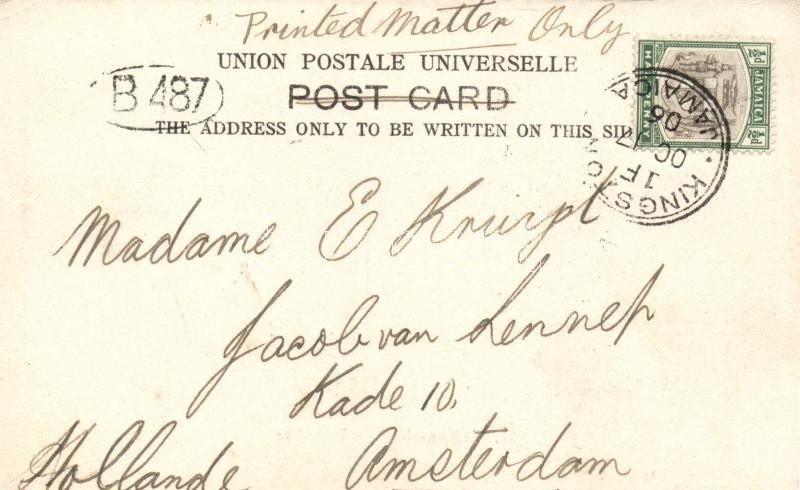 Printed Matter Only
UNION POSTALE UNIVERSELLE
B 487
POST CARD
THE ADDRESS ONLY TO BE WRITTEN ON THIS SID
½d JAMAICA ½d
HALFPENNY
KINGSTON
JAMAICA
1 F
OC 17
06
Madame E
Jacob van Lennep
Kade 10.
Hollande Amsterdam